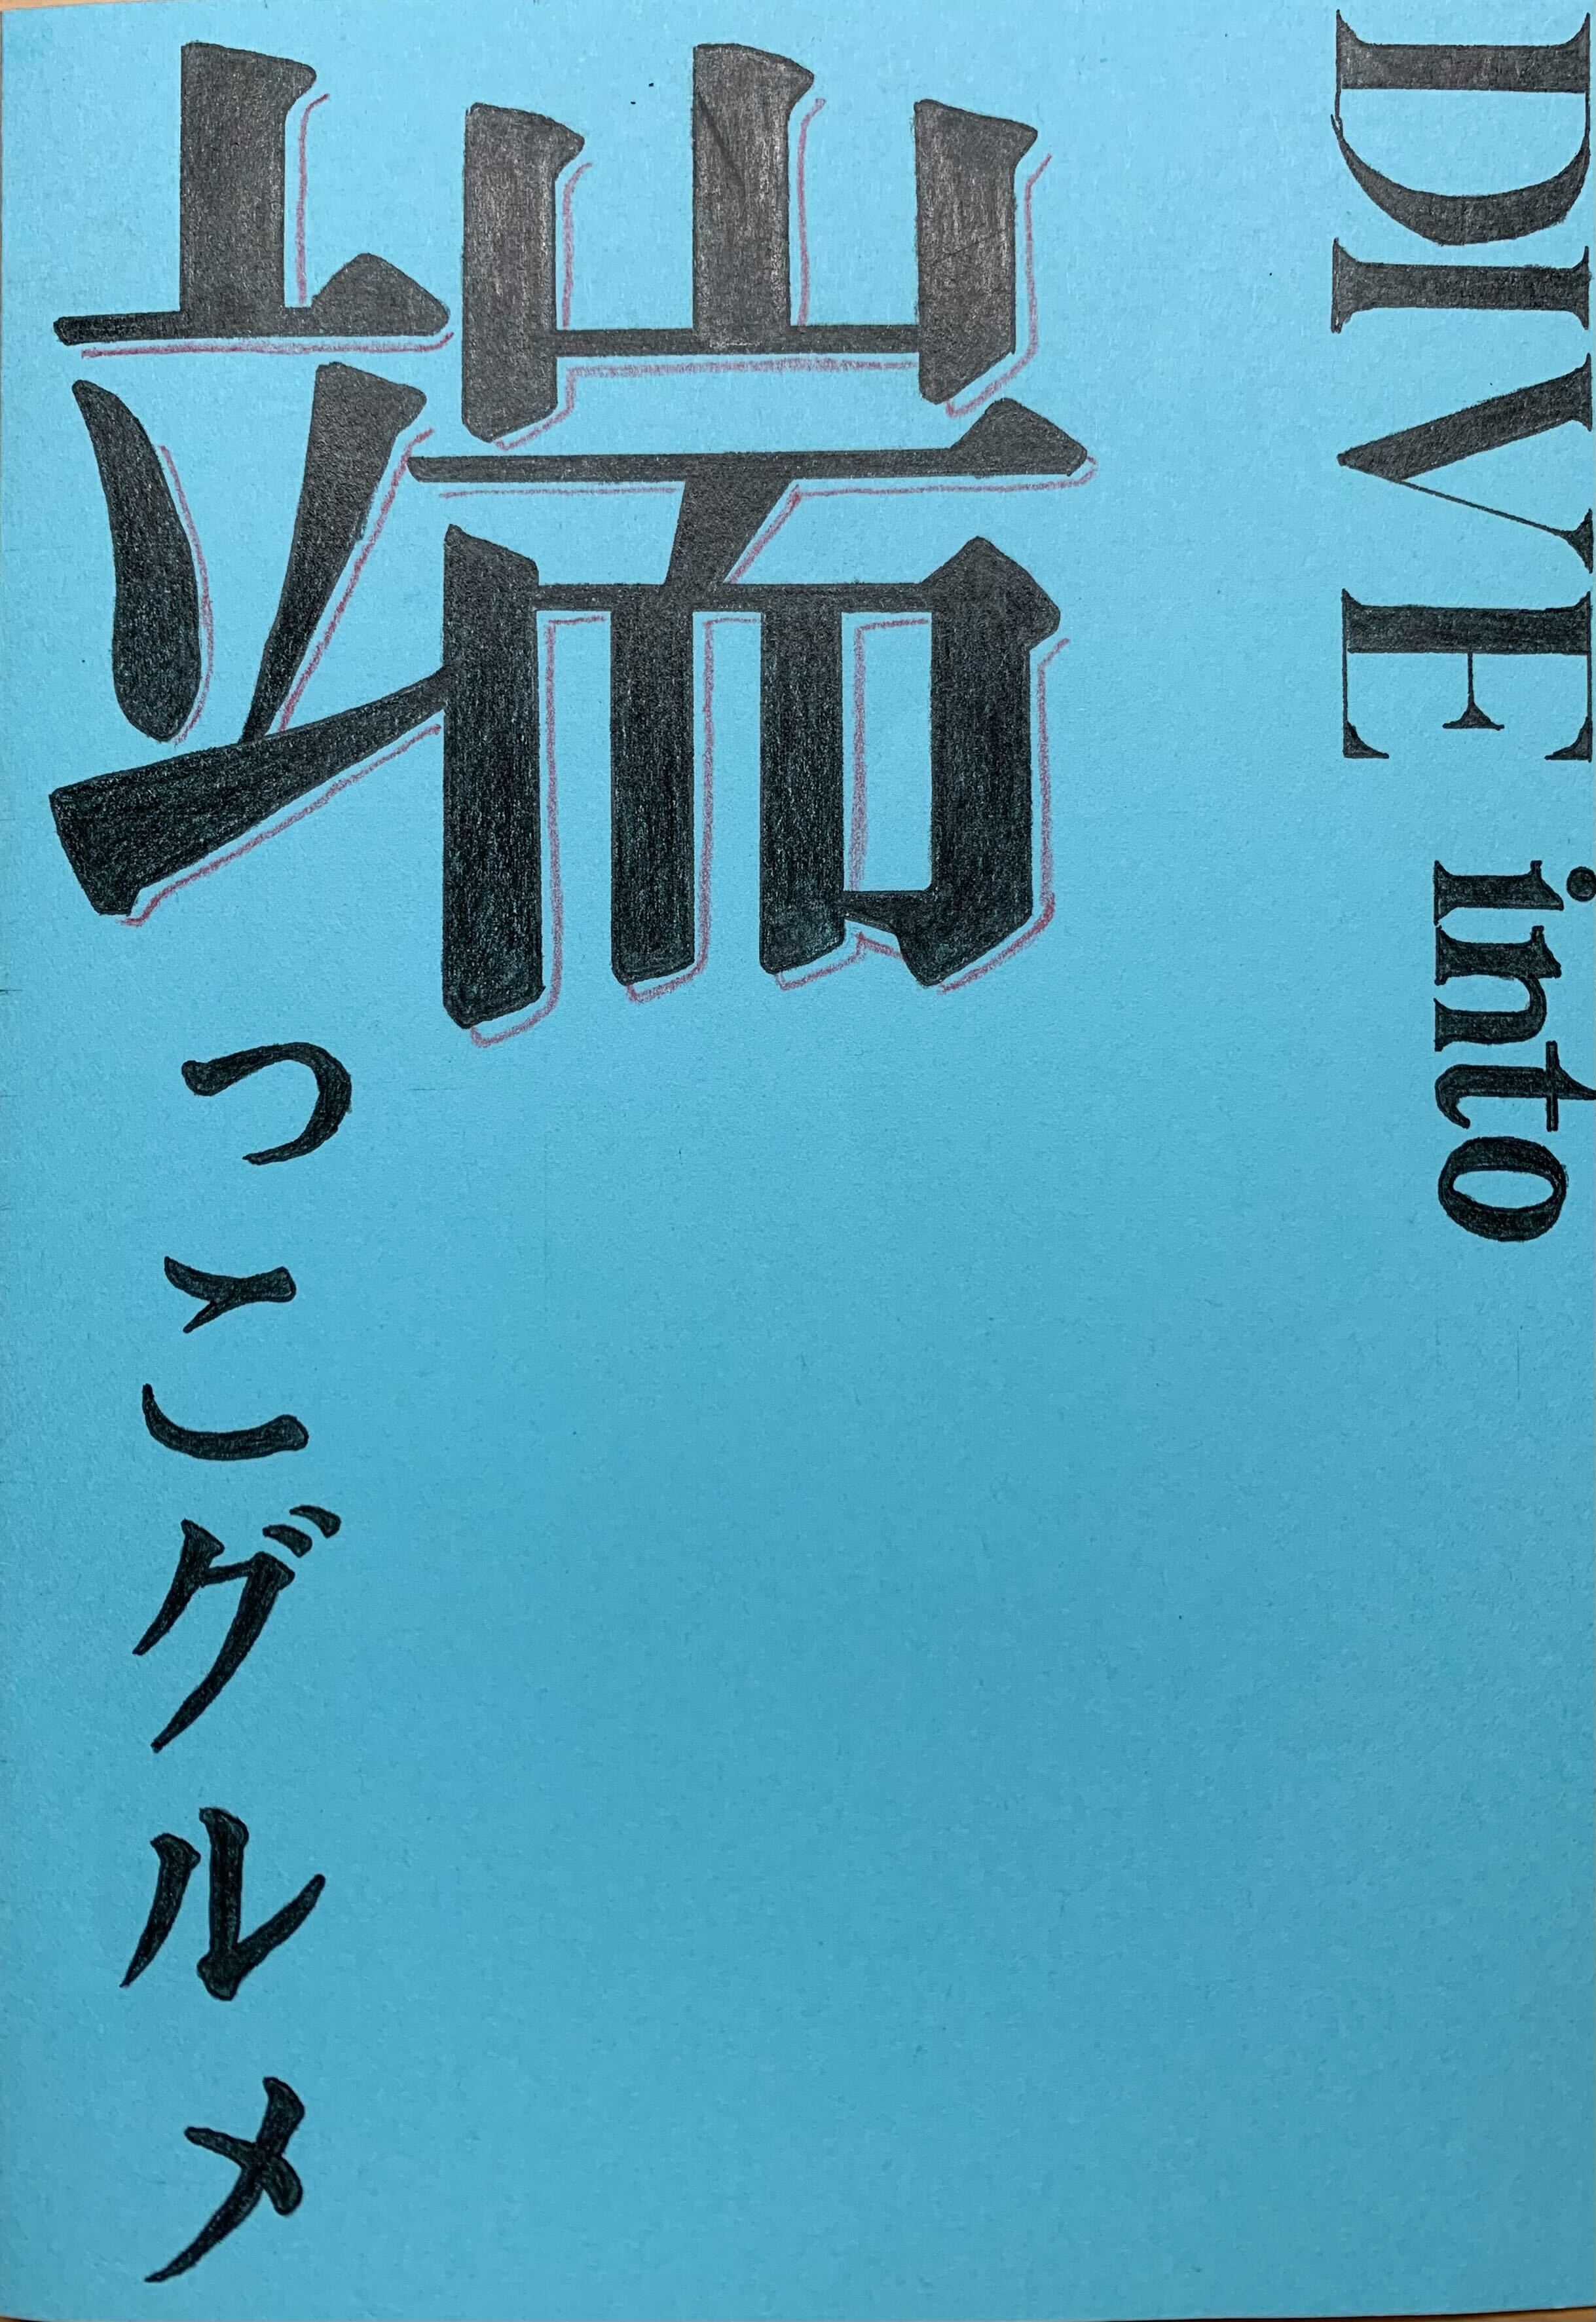 DIVE into
端っこグルメ